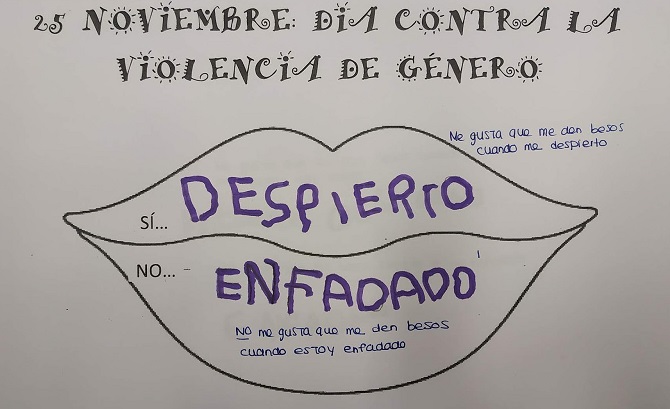 25 NOVIEMBRE: DÍA CONTRA LA
VIOLENCIA DE GÉNERO
Me gusta que me den besos
cuando me despierto
SÍ... DESPIERTO
NO... ENFADADO
NO me gusta que me den besos
cuando estoy enfadado